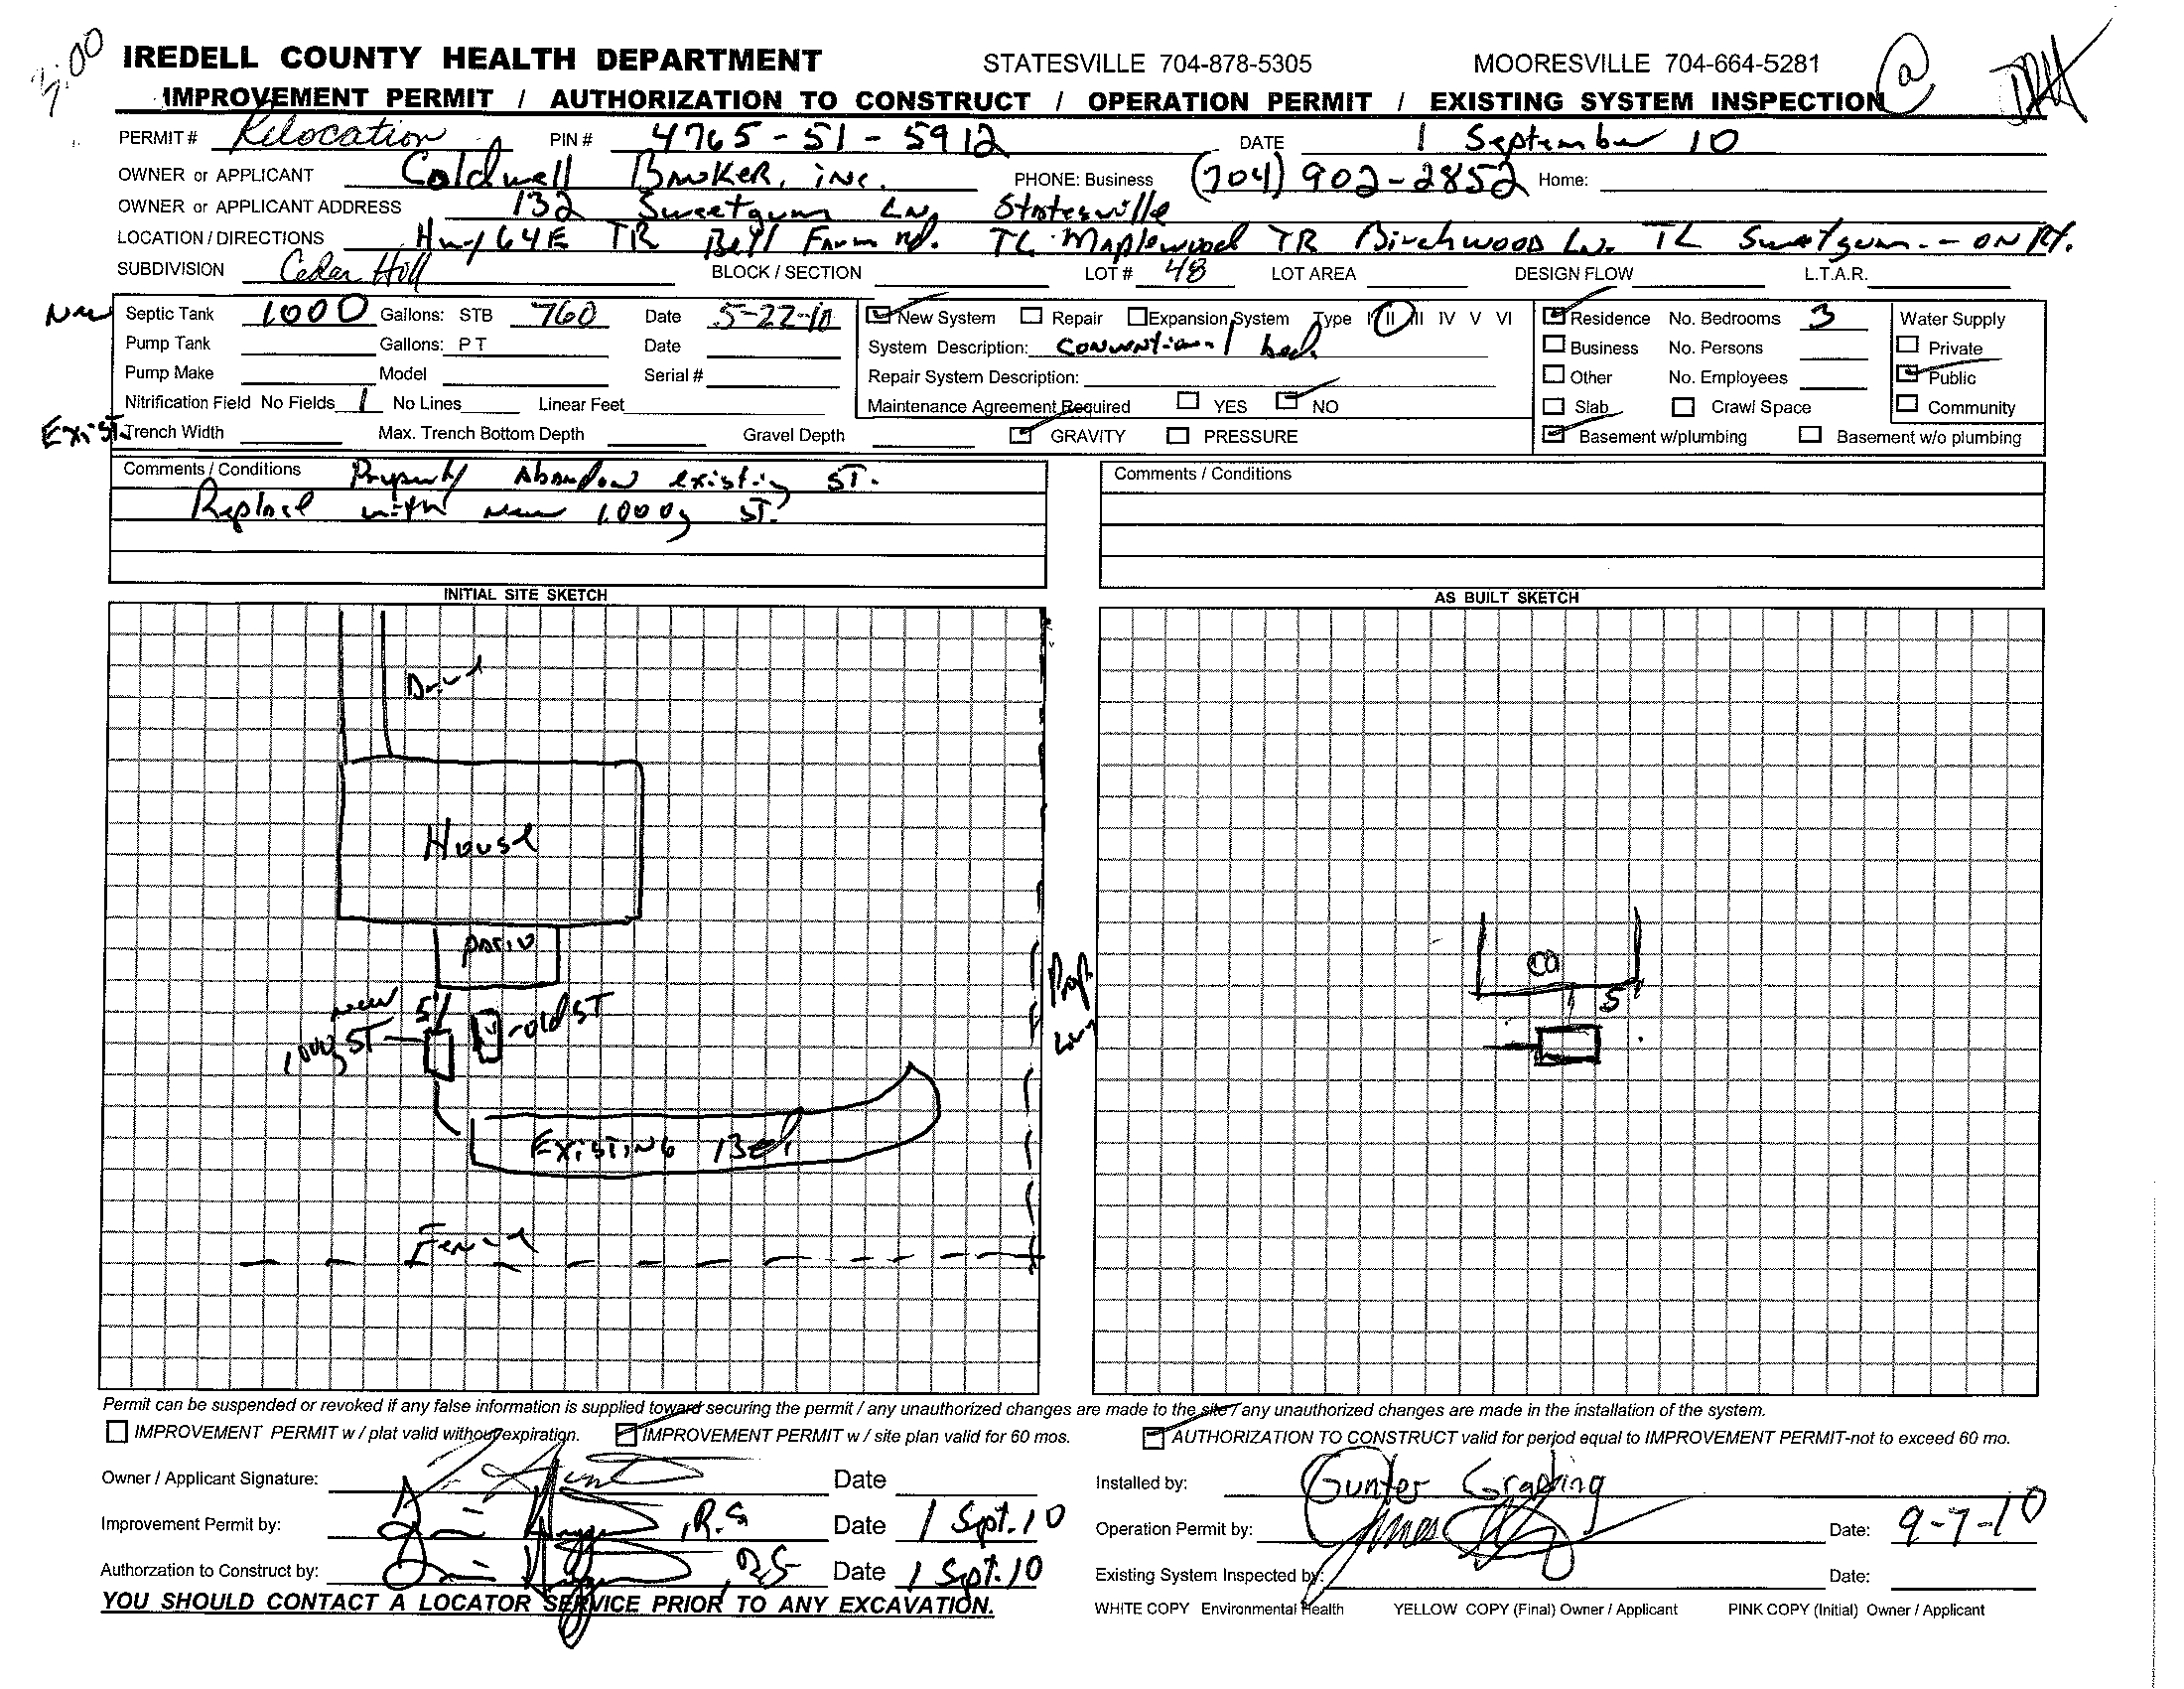 3:00
IREDELL COUNTY HEALTH DEPARTMENT STATESVILLE 704-878-5305 MOORESVILLE 704-664-5281
IMPROVEMENT PERMIT / AUTHORIZATION TO CONSTRUCT / OPERATION PERMIT / EXISTING SYSTEM INSPECTION
PERMIT # Relocation PIN # 4765-51-5912 DATE 1 September 10
OWNER or APPLICANT Coldwell Banker, inc. PHONE: Business (704) 902-2852 Home:
OWNER or APPLICANT ADDRESS 132 Sweetgum Ln, Statesville
LOCATION / DIRECTIONS Hwy 64E TR Bell Farm rd. TL Maplewood TR Birchwood Ln. TL Sweetgum -- ON Rt.
SUBDIVISION Cedar Hill BLOCK / SECTION LOT # 48 LOT AREA DESIGN FLOW L.T.A.R.
New Septic Tank 1000 Gallons: STB 760 Date 5-22-10 New System Repair Expansion System Type I II III IV V VI Residence No. Bedrooms 3 Water Supply
Pump Tank Gallons: P T Date System Description: conventional bed Business No. Persons Private
Pump Make Model Serial # Repair System Description: Other No. Employees Public
Nitrification Field No Fields 1 No Lines Linear Feet Maintenance Agreement Required YES NO Slab Crawl Space Community
Exist. Trench Width Max. Trench Bottom Depth Gravel Depth GRAVITY PRESSURE Basement w/plumbing Basement w/o plumbing
Comments / Conditions Properly Abandon existing ST. Comments / Conditions
Replace with new 1000g ST.
INITIAL SITE SKETCH AS BUILT SKETCH
Drive
House
patio
CO
Prop.
Line
new 5'
old ST
5
1000g ST
Existing Bed
Fence
Permit can be suspended or revoked if any false information is supplied toward securing the permit / any unauthorized changes are made to the site / any unauthorized changes are made in the installation of the system.
IMPROVEMENT PERMIT w / plat valid without expiration. IMPROVEMENT PERMIT w / site plan valid for 60 mos. AUTHORIZATION TO CONSTRUCT valid for period equal to IMPROVEMENT PERMIT-not to exceed 60 mo.
Owner / Applicant Signature: Date Installed by: Gunter Grading
Improvement Permit by: , R.S Date 1 Sept. 10 Operation Permit by: James Date: 9-7-10
Authorzation to Construct by: , RS Date 1 Sept. 10 Existing System Inspected by: Date:
YOU SHOULD CONTACT A LOCATOR SERVICE PRIOR TO ANY EXCAVATION. WHITE COPY Environmental Health YELLOW COPY (Final) Owner / Applicant PINK COPY (Initial) Owner / Applicant